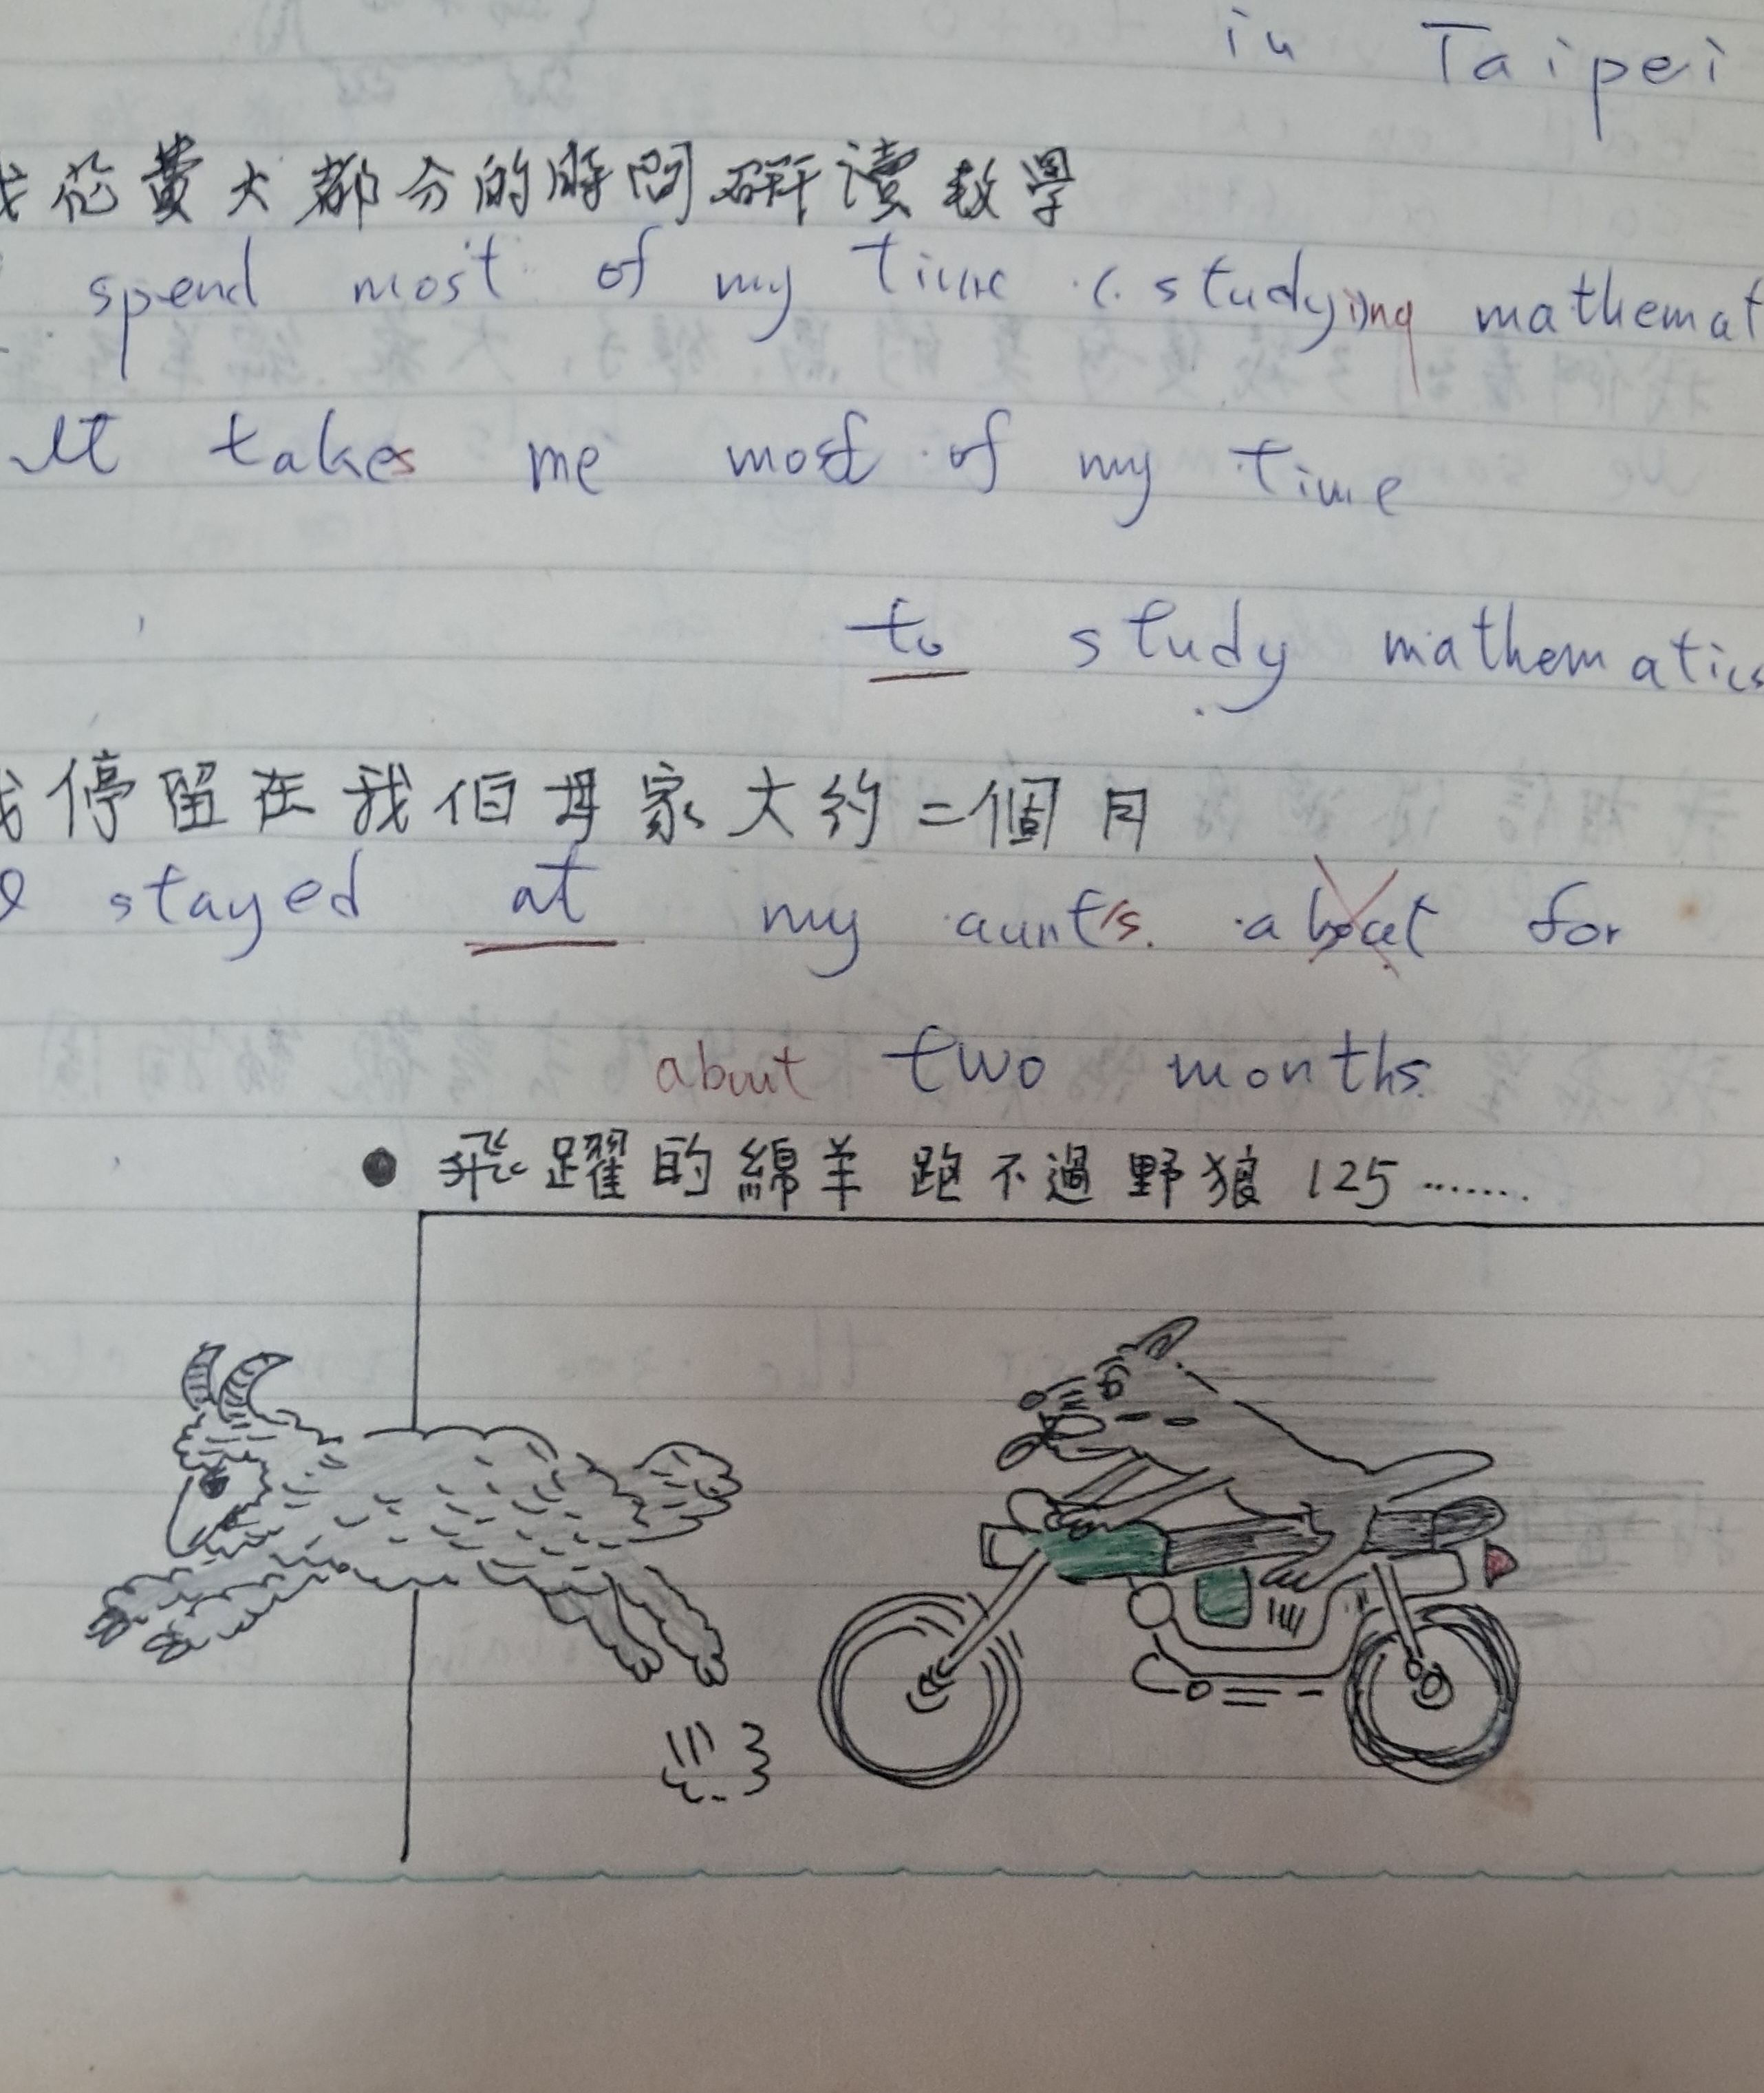 in Taipei
我花費大都分的時間研讀数學
spend most of my time (studying mathemat
It takes me most of my time
to study mathematics
我停留在我伯母家大約二個月
I stayed at my aunt's. about for
about two months.
● 飛躍的綿羊 跑不過野狼 125.......